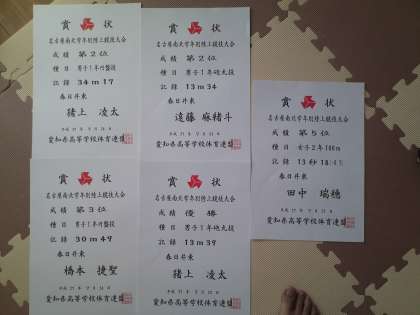 賞 状
名古屋南北学年別陸上競技大会
成績 第2位
種目 男子1年円盤投
記録 34m17
春日井東
猪上 凌太
愛知県高等学校体育連盟
賞 状
名古屋南北学年別陸上競技大会
成績 第2位
種目 男子1年砲丸投
記録 13m34
春日井東
遠藤 麻緒斗
愛知県高等学校体育連盟
賞 状
名古屋南北学年別陸上競技大会
成績 第5位
種目 女子2年100m
記録 13秒18
春日井東
田中 瑞穂
愛知県高等学校体育連盟
賞 状
名古屋南北学年別陸上競技大会
成績 第3位
種目 男子1年円盤投
記録 30m49
春日井東
橋本 捷聖
愛知県高等学校体育連盟
賞 状
名古屋南北学年別陸上競技大会
成績 優勝
種目 男子1年砲丸投
記録 13m39
春日井東
猪上 凌太
愛知県高等学校体育連盟